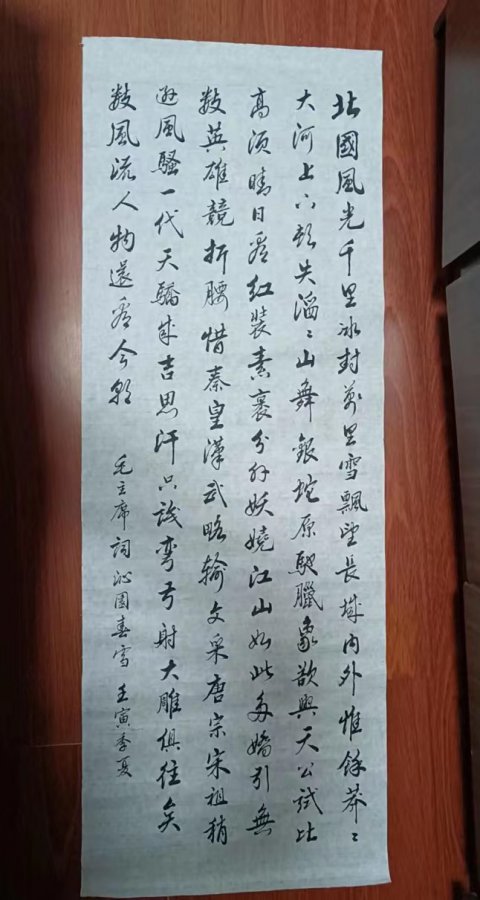 北國風光千里冰封万里雪飄望長城内外惟餘莽〻
大河上下頓失滔〻山舞銀蛇原馳臘象欲與天公試比
高須晴日看红裝素裹分外妖娆江山如此多嬌引無
数英雄競折腰惜秦皇漢武略输文采唐宗宋祖稍
遜風騷一代天驕成吉思汗只識弯弓射大雕俱往矣
数風流人物還看今朝
毛主席詞沁園春雪 壬寅季夏